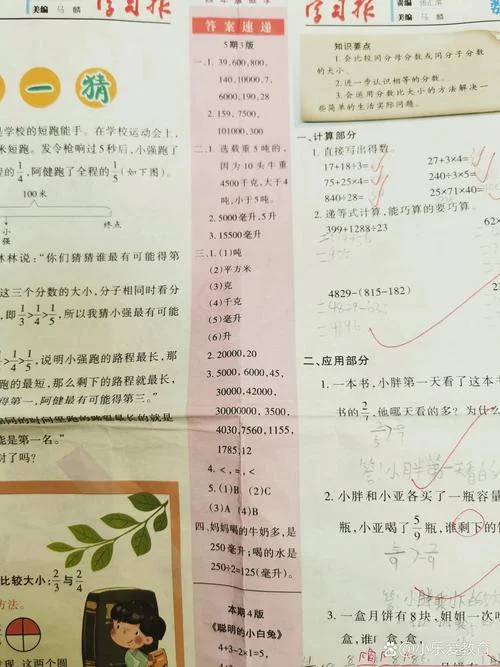 学习报
美编 马 麟
一 猜
是学校的短跑能手。在学校运动会上,
米短跑。发令枪响过5秒后,小强跑了
的1/4,阿健跑了全程的1/5(如下图)。
100米
小强
终点
林林说:“你们猜猜谁最有可能得第
这三个分数的大小,分子相同时看分
即1/3>1/4>1/5,所以我猜小强最有可能
>1/4>1/5,说明小强跑的路程最长,那
跑的最短,那么剩下的路程就最长,
得第一,阿健最有可能得第三。”
能是第一名。”
对了吗?
比较大小:2/3与2/4
方法。
表示,这两个圆
答案速递
5期3版
一、1. 39,600,800,
140,10000,7,
6000,190,28
2. 159,7500,
101000,300
二、1. 选载重5吨的,
因为10头牛重
4500千克,大于4
吨,小于5吨。
2. 5000毫升,5升
3. 15500毫升
三、1. (1)吨
(2)平方米
(3)克
(4)千克
(5)毫升
(6)升
2. 20000,20
3. 5000,6000,45,
30000,42000,
30000000,3500,
4030,7560,1155,
1785,12
4. <,=,<
5. (1)B (2)C
(3)A (4)B
四、妈妈喝的牛奶多,是
250毫升;喝的水是
250÷2=125(毫升)。
本期4版
《聪明的小白兔》
4+3-2×1=5,
学习报
美编 马 麟
知识要点
1. 会比较同分母分数或同分子分数
的大小。
2. 进一步认识相等的分数。
3. 会运用分数比大小的方法解决一
些简单的生活实际问题。
一、计算部分
1. 直接写出得数。
17+18÷3= 27+3×4=
75+25×4= 240÷3×5=
840÷28= 25×71×40=
2. 递等式计算,能巧算的要巧算。
399+1288÷23 62×
4829-(815-182)
=4196
二、应用部分
1. 一本书,小胖第一天看了这本书
书的2/7,他哪天看的多?为什么
2. 小胖和小亚各买了一瓶容量
瓶,小亚喝了5/9瓶,谁剩下的
3. 一盒月饼有8块,姐姐一次吃
盒,谁
@小乐爱教育